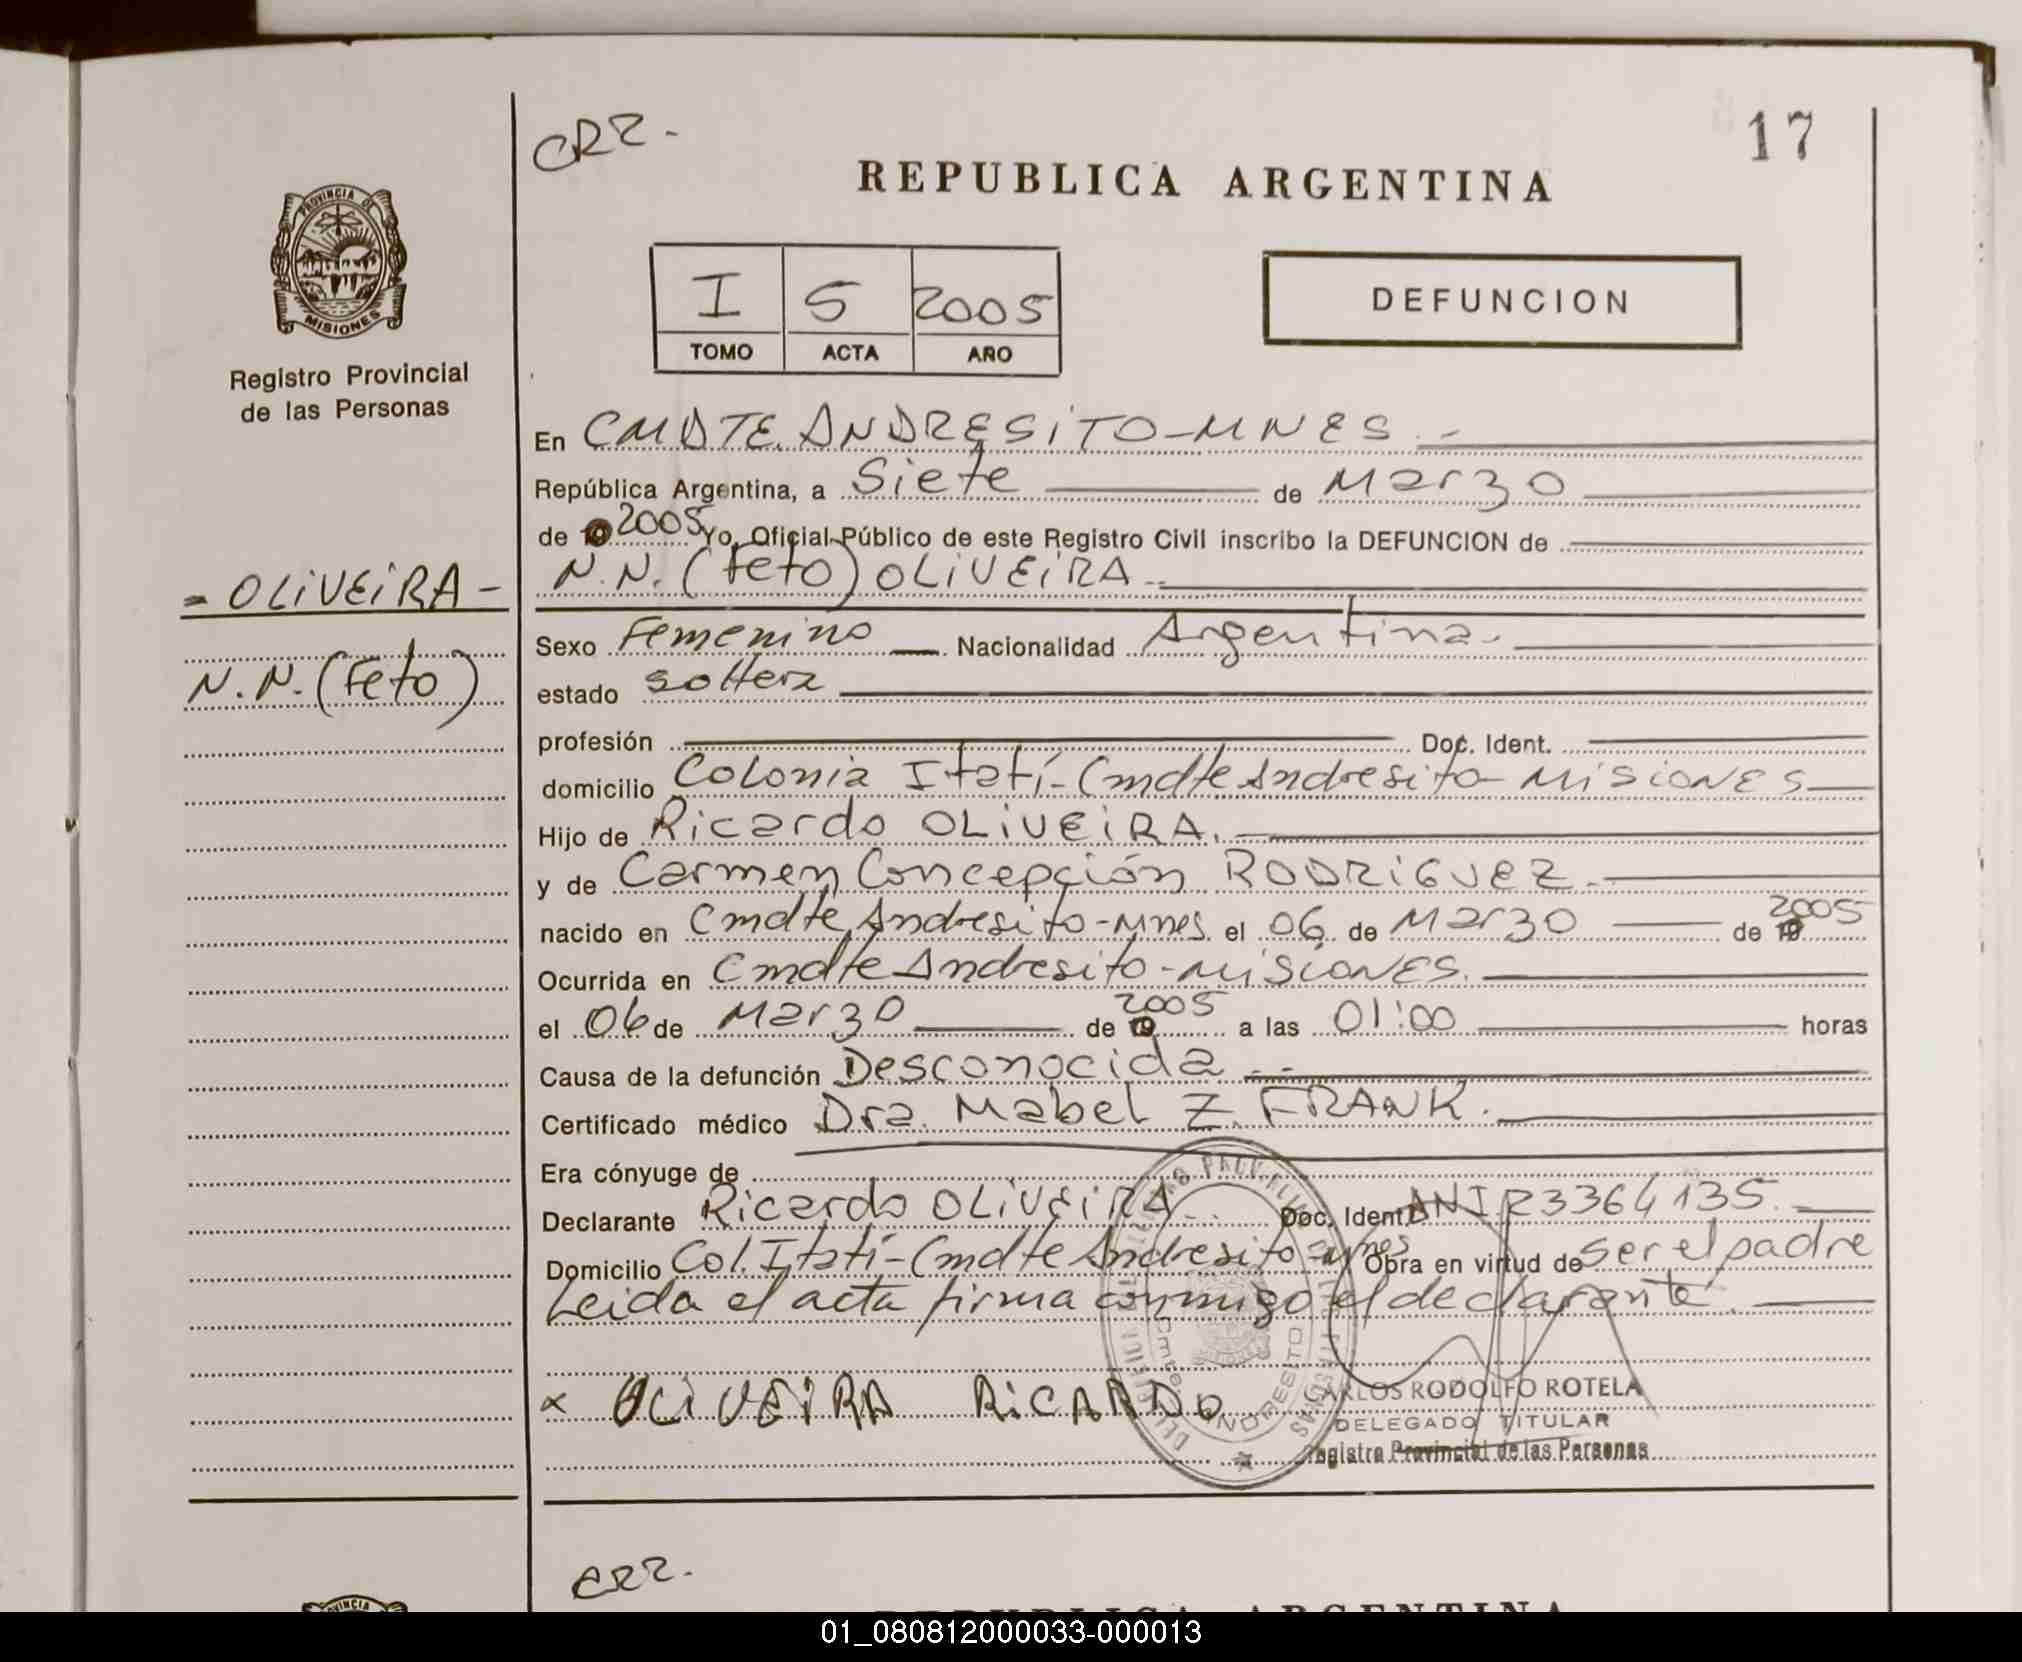 17
CRR-
REPUBLICA ARGENTINA
PROVINCIA DE
MISIONES
I 5 2005
TOMO ACTA AÑO
DEFUNCION
Registro Provincial
de las Personas
En CMDTE. ANDRESiTO-MNES.-
República Argentina, a Siete de Marzo
de 19 2005 Yo, Oficial Público de este Registro Civil inscribo la DEFUNCION de
N.N. (Feto) OLiVEiRA.-
- OLiVEiRA -
N.N. (Feto)
Sexo Femenino Nacionalidad Argentina.
estado soltera
profesión Doc. Ident.
domicilio Colonia Itatí-Cmdte Andresito-MiSiONES
Hijo de Ricardo OLiVEiRA.
y de Carmen Concepción RODRiGUEZ.
nacido en Cmdte Andresito-Mnes. el 06 de Marzo de 19 2005
Ocurrida en Cmdte Andresito-MiSiONES.
el 06 de Marzo de 19 2005 a las 01:00 horas
Causa de la defunción Desconocida.-
Certificado médico Dra. Mabel Z. FRANK.
Era cónyuge de
Declarante Ricardo OLiVEiRA.. Doc. Ident. DNI R3364135.
Domicilio Col. Itatí-Cmdte Andresito-Mnes Obra en virtud de ser el padre
Leida el acta firma conmigo el declarante.
x OLiVEiRA RiCARDO
CARLOS RODOLFO ROTELA
DELEGADO TITULAR
Registro Provincial de las Personas
CRR.
REPUBLICA ARGENTINA
01_080812000033-000013